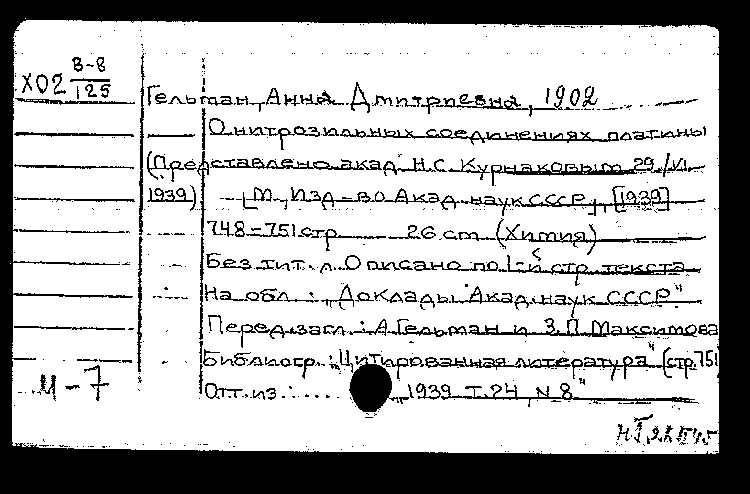 В-8
Х02 125
Гельман, Анна Дмитриевна, 1902
О нитрозильных соединениях платины
(Представлено акад. Н.С. Курнаковым 29/VI
1939) [М., Изд-во Акад. наук СССР], [1939]
748-751 стр. 26 cm (Химия)
Без тит. л. Описано по 1-й стр. текста
На обл.: "Доклады Акад. наук СССР"
Перед загл.: А. Гельман и З.П. Максимова
Библиогр.: "Цитированная литература" (стр. 751
Отт. из: .... "1939 т. 24, N 8"
М-7